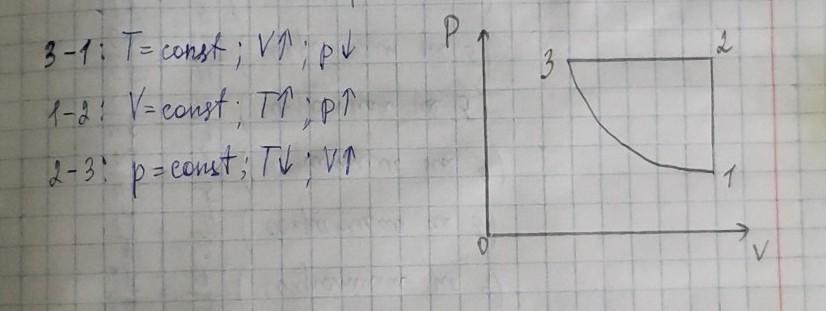 3-1: T=const; V↑; p↓
1-2: V=const; T↑; p↑
2-3: p=const; T↓; V↑
P
3
2
1
0
V